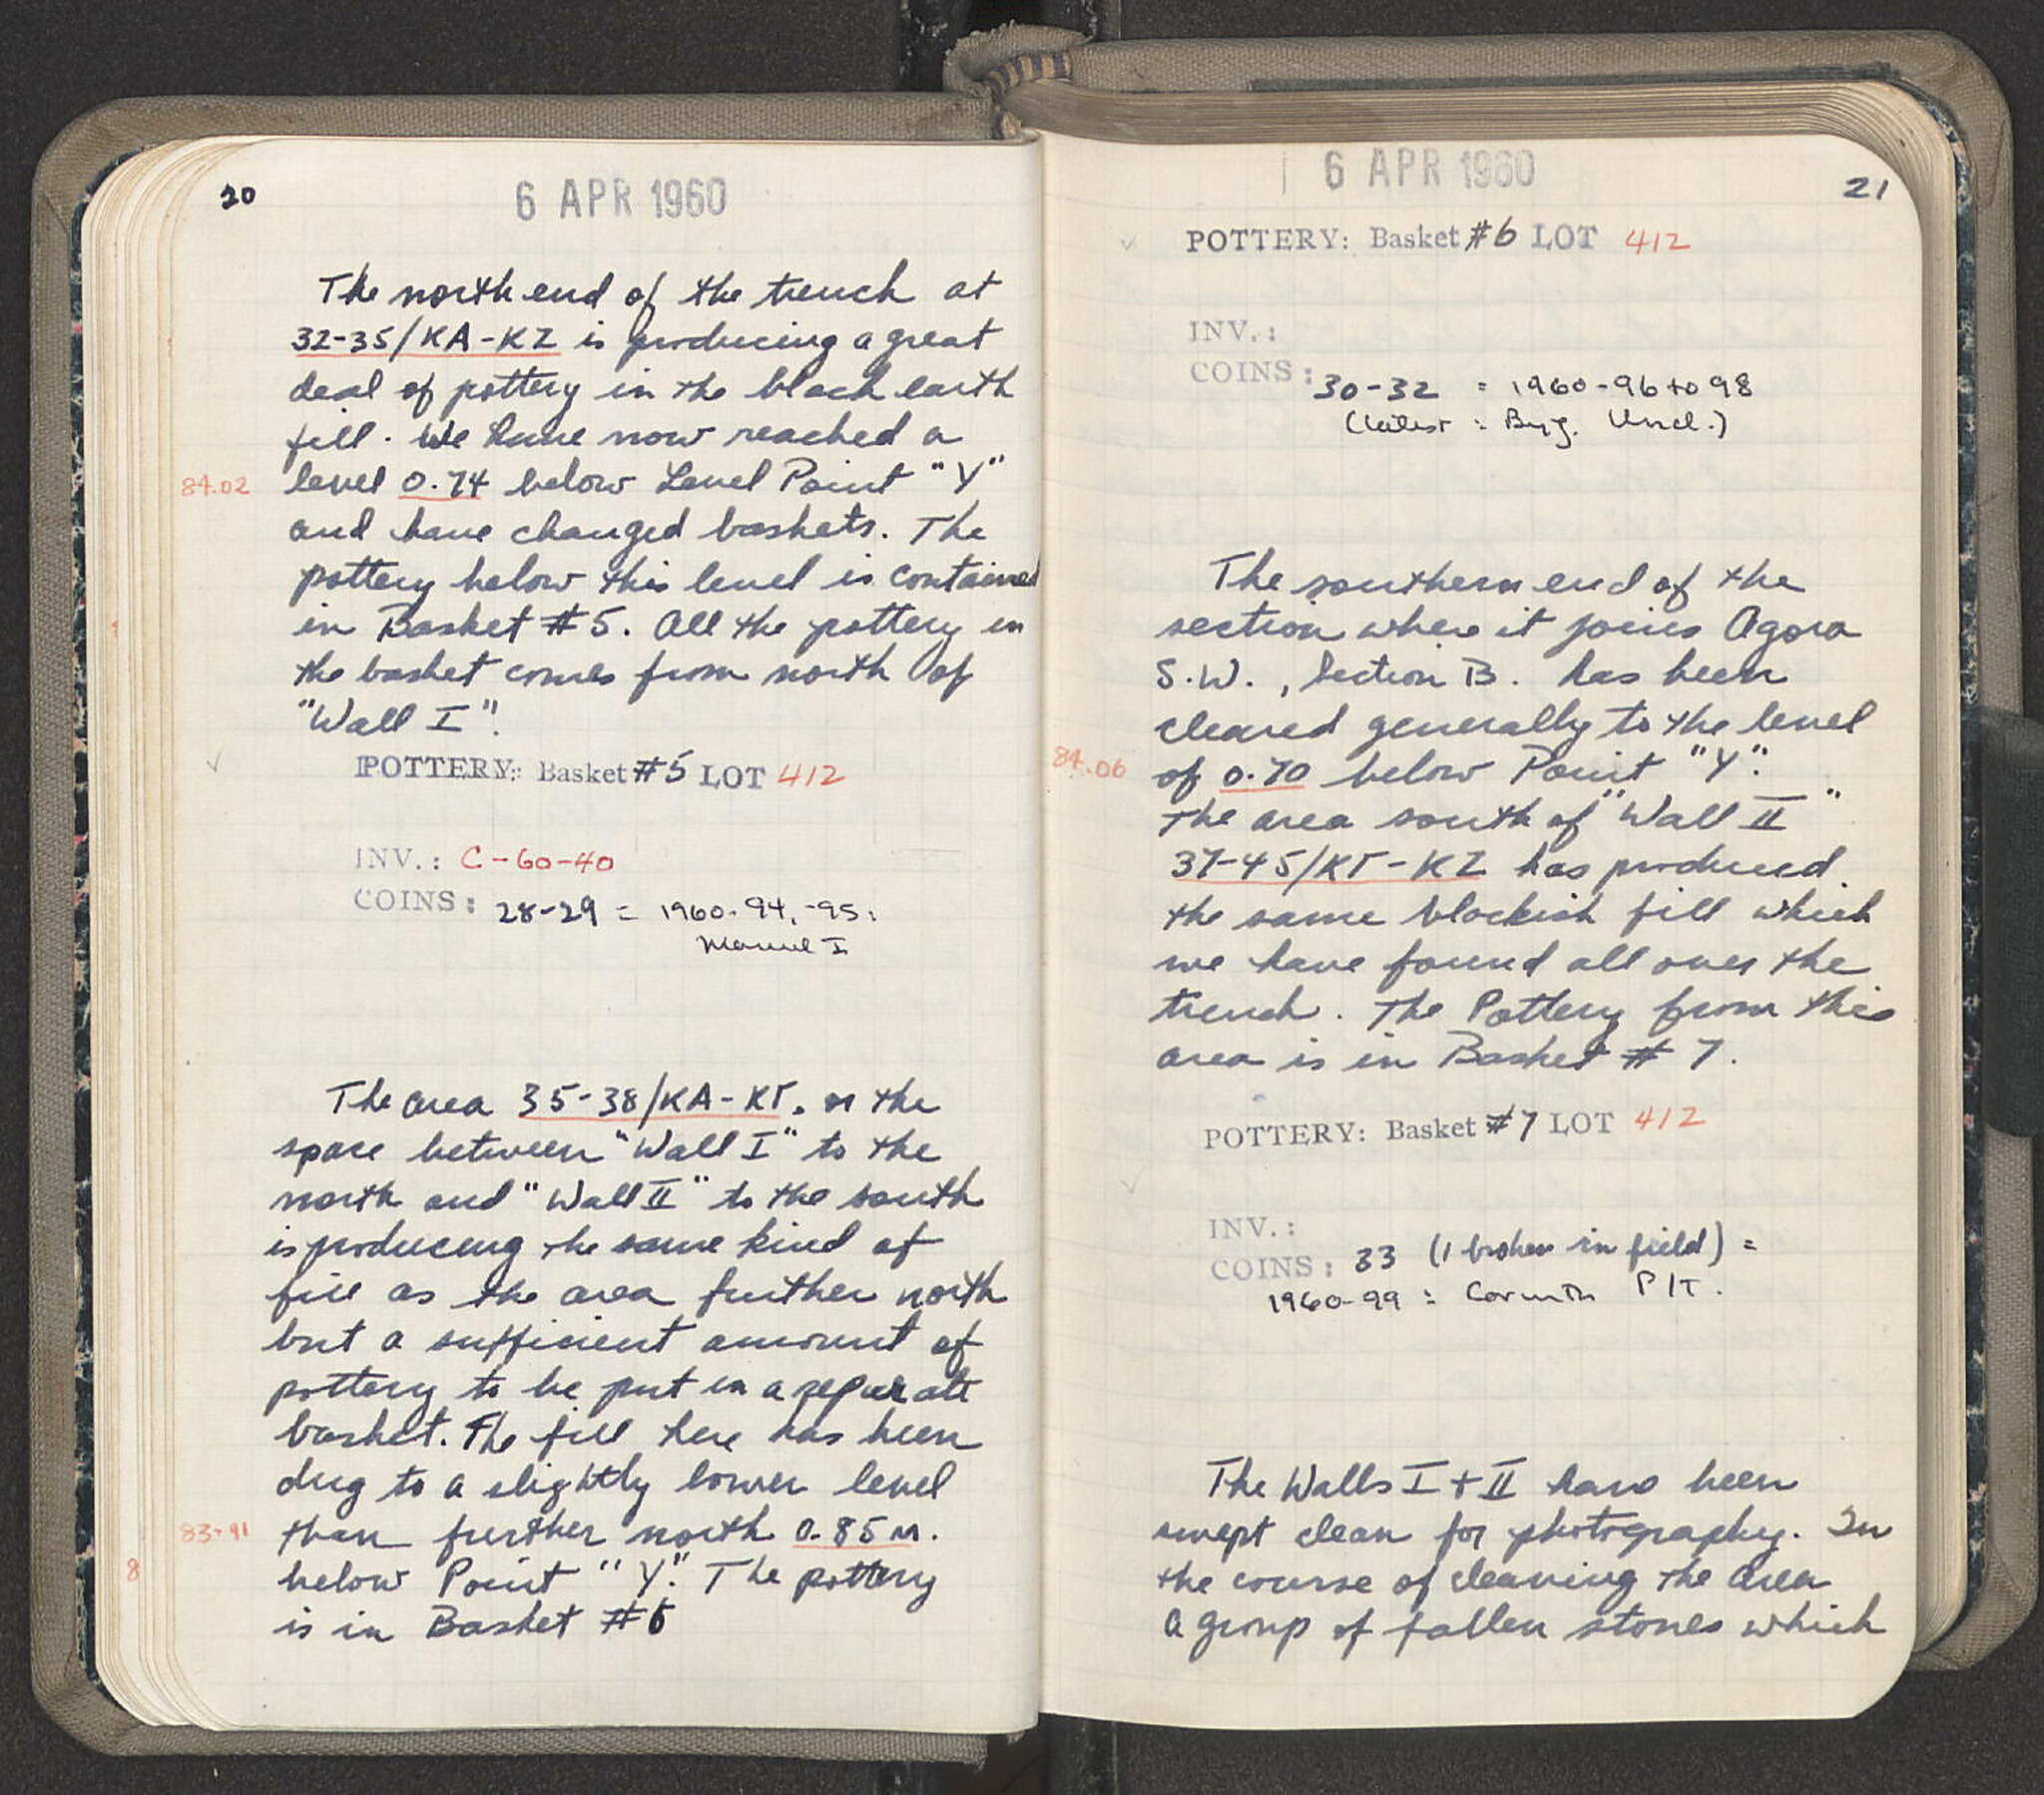 20
6 APR 1960
The north end of the trench at
32-35/KA-KZ is producing a great
deal of pottery in the black earth
fill. We have now reached a
84.02 level 0.74 below Level Point "Y"
and have changed baskets. The
pottery below this level is contained
in Basket #5. All the pottery in
the basket comes from north of
"Wall I".
POTTERY: Basket #5 LOT 412
INV.: C-60-40
COINS: 28-29 = 1960-94, -95:
Manuel I
The area 35-38/KA-KΓ, or the
space between "Wall I" to the
north and "Wall II" to the south
is producing the same kind of
fill as the area further north
but a sufficient amount of
pottery to be put in a separate
basket. The fill here has been
dug to a slightly lower level
83.91 than further north 0.85 m.
8 below Point "Y". The pottery
is in Basket #6
6 APR 1960
21
POTTERY: Basket #6 LOT 412
INV.:
COINS: 30-32 = 1960-96 to 98
(latest: Byz. Uncl.)
The southern end of the
section where it joins Agora
S.W., Section B. has been
cleared generally to the level
84.06 of 0.70 below Point "Y".
The area south of "Wall II"
37-45/KΓ-KZ has produced
the same blackish fill which
we have found all over the
trench. The Pottery from this
area is in Basket #7.
POTTERY: Basket #7 LOT 412
INV.:
COINS: 33 (1 broken in field) =
1960-99 = Corinth P/T.
The Walls I + II have been
swept clean for photography. In
the course of cleaning the area
a group of fallen stones which